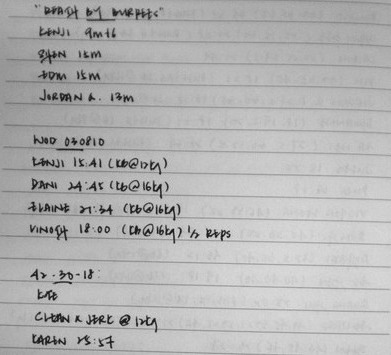 "DEATH BY BURPEES"
KENJI 9m+6
SHEN 15m
EDM 15m
JORDAN L. 13m
WOD 030810
KENJI 15:41 (KB@12kg)
DANI 24:45 (KB@16kg)
ELAINE 21:34 (KB@16kg)
VINOSH 18:00 (KB@16kg) 1/2 REPS
42-30-18:
CLEAN & JERK @ 12kg
KAREN 25:57